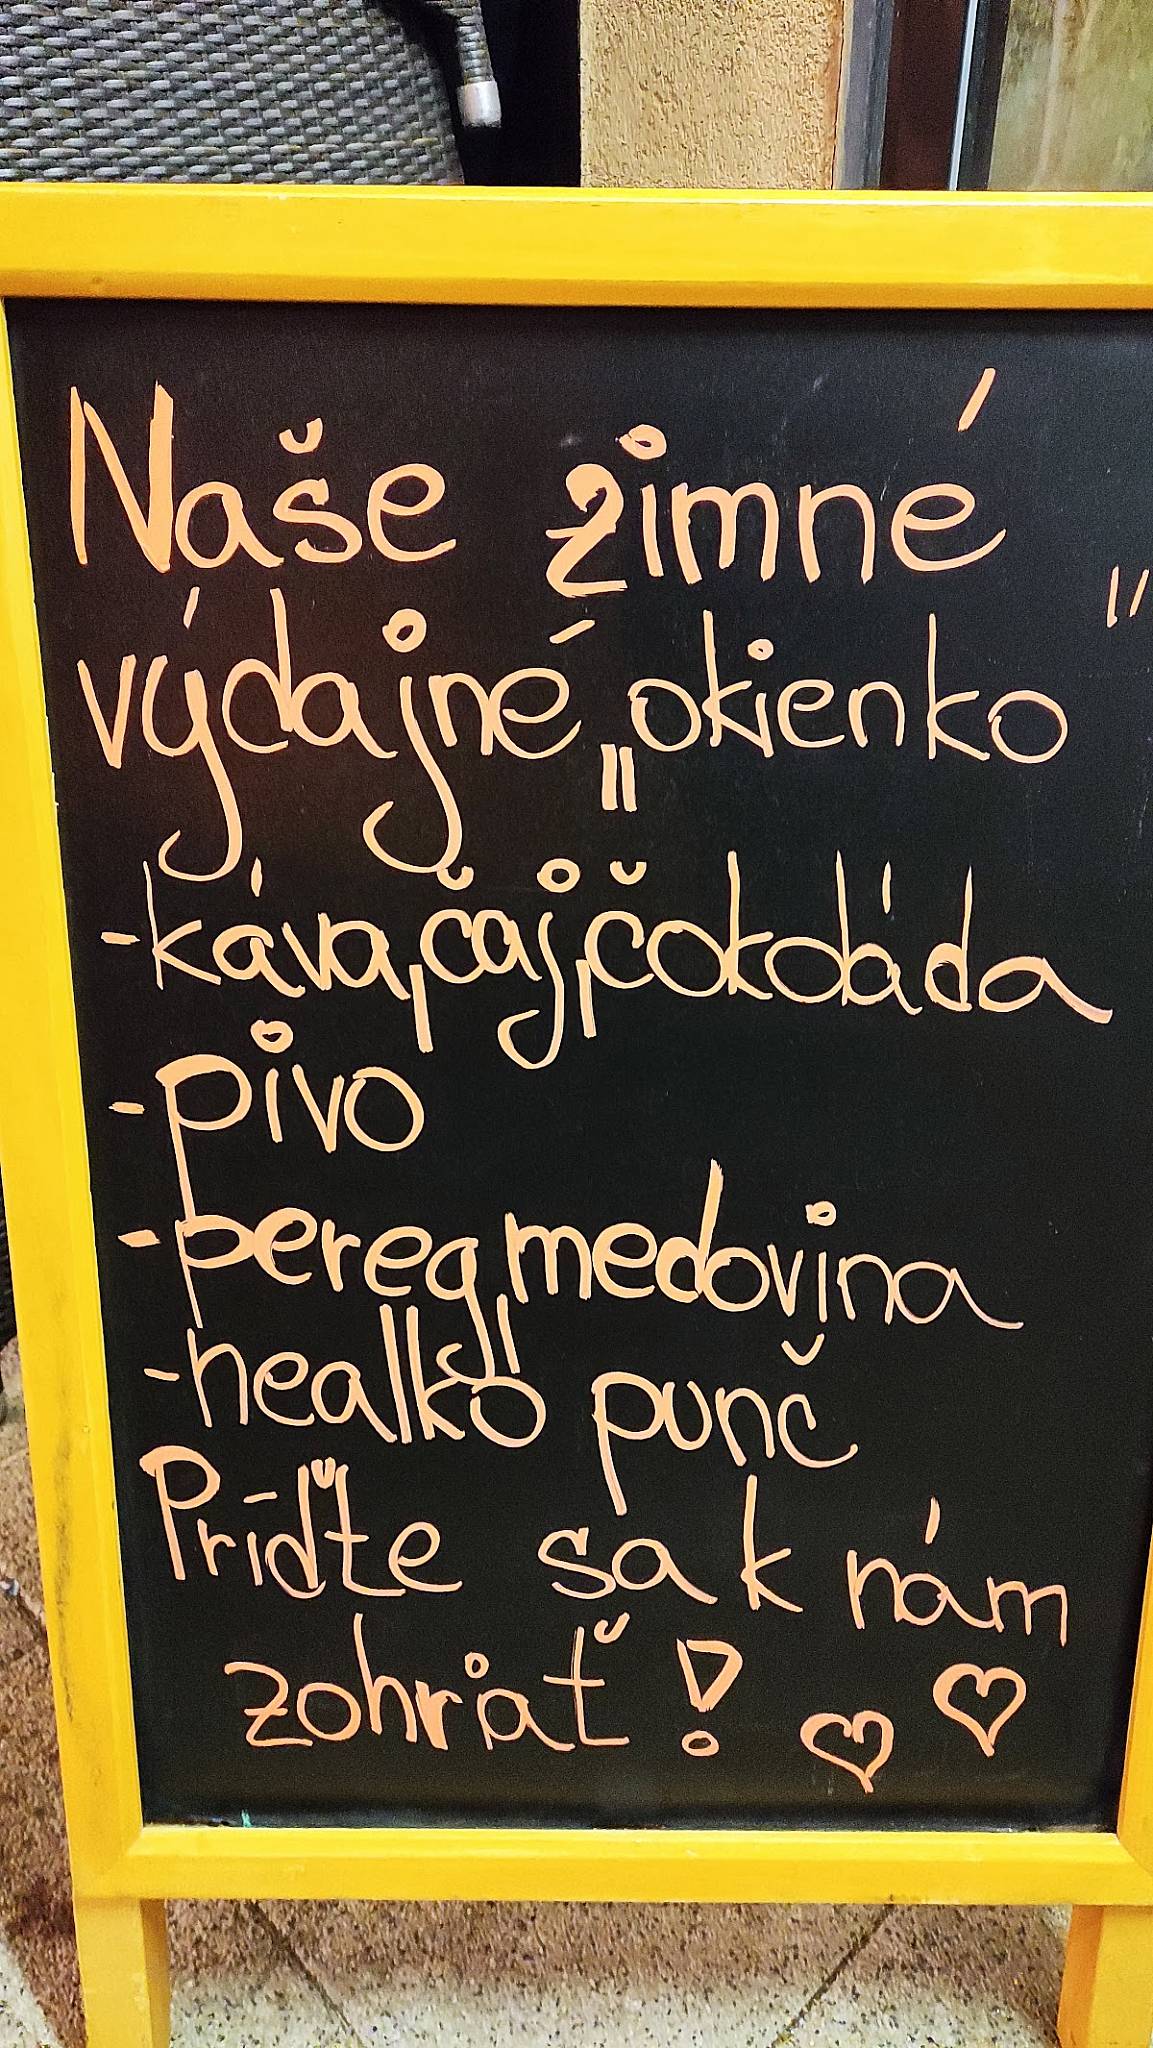 Naše zimné
výdajné „okienko"
-káva,čaj,čokoláda
-pivo
-bereg,medovina
-nealko punč
Príďte sa k nám
zohriať!